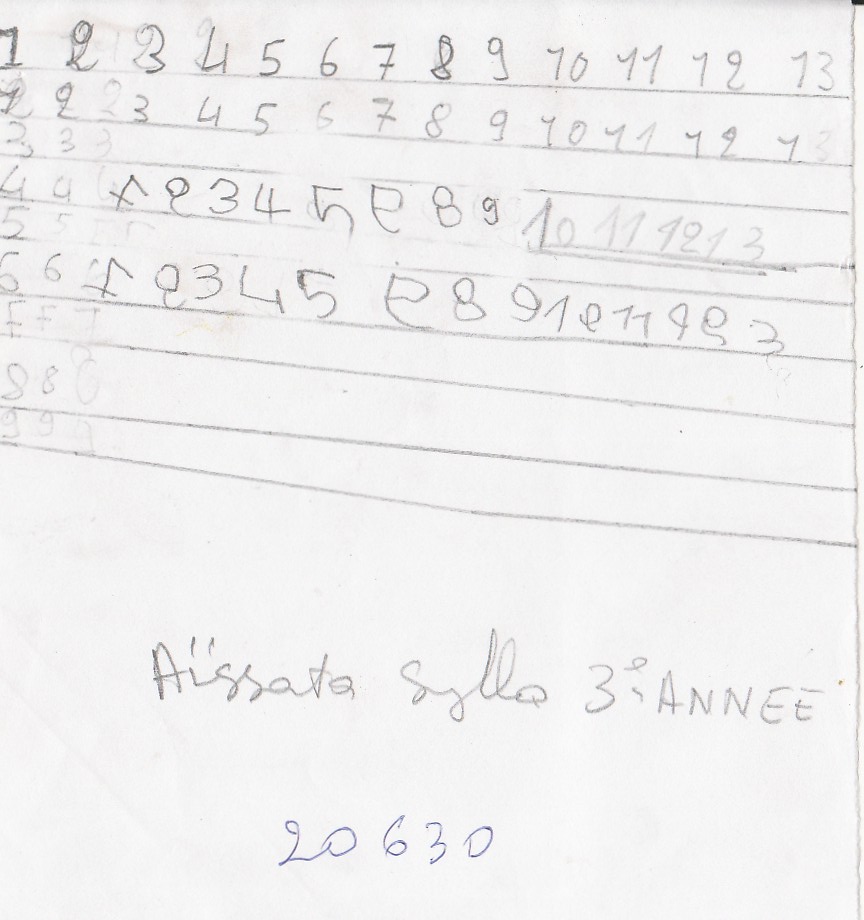 1 2 3 4 5 6 7 8 9 10 11 12 13
1 2 2 3 4 5 6 7 8 9 10 11 12 13
3 3 3
4 4 1 2 3 4 5 8 9 10 11 12 13
5 5
6 6 1 2 3 4 5 8 9 10 11 12 3
7 7 7
8 8 8
9 9 9
Aïssata Sylla 3è ANNEE
20630